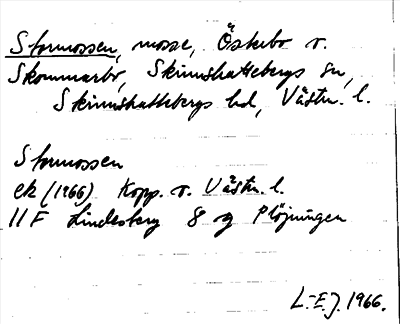 Stormossen, mosse, Östebo v.
Skommarbo, Skinnskattebergs sn,
Skinnskattebergs hd, Västm. l.
Stormossen
ek (1966) Kopp. v. Västm. l.
11F Lindesberg 8 g Plöjningen
L-E.J. 1966.